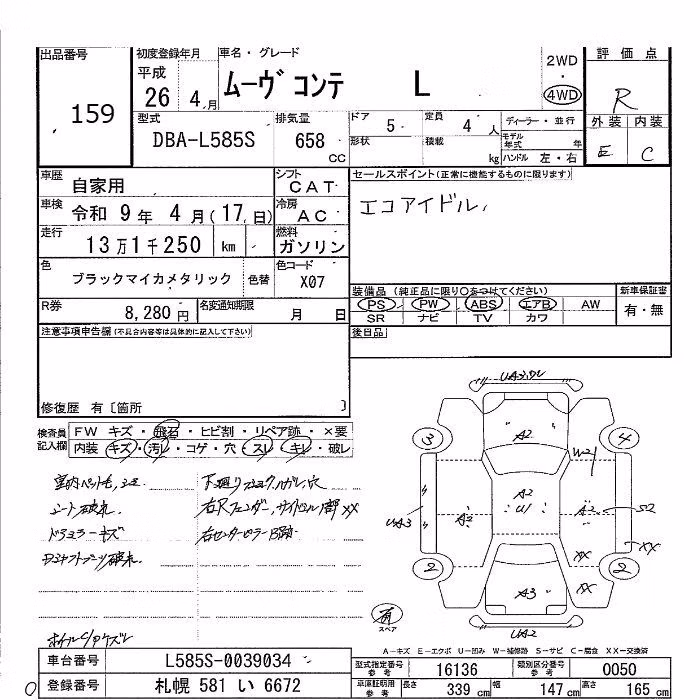 出品番号
159
初度登録年月
平成
26 4 月
車名・グレード
ムーヴ コンテ L
2WD
・
4WD
評価点
R
外装 内装
E C
型式
DBA-L585S
排気量
658
CC
ドア
5
定員
4 人
形状
積載
kg
ディーラー・並行
モデル年式 年
ハンドル 左・右
車歴
自家用
シフト
CAT
車検
令和 9 年 4 月(17 日)
冷房
AC
走行
13万1千250 km
燃料
ガソリン
色
ブラックマイカメタリック
色替
色コード
X07
R券
8,280 円
名変通知期限
月 日
セールスポイント(正常に機能するものに限ります)
エコアイドル
装備品 (純正品に限り○をつけてください)
PS PW ABS エアB AW
SR ナビ TV カワ
新車保証書
有・無
後日品
注意事項申告欄(不具合内容等は具体的に記入して下さい)
修復歴 有〔箇所 〕
検査員記入欄
FW キズ・飛石・ヒビ割・リペア跡・×要
内装 キズ・汚レ・コゲ・穴・スレ・キレ・破レ
シート破れ
右センターピラー
3
4
2
2
A2
A2
U1
A2
A2
S2
W2
XX
XX
XX
UA3
A3
UA2
有
スペア
A-キズ E-エクボ U-凹み W-補修跡 S-サビ C-腐食 XX-交換済
車台番号
L585S-0039034
登録番号
札幌 581 い 6672
型式指定番号
参考
16136
類別区分番号
参考
0050
車庫証明用
参考
長さ
339 cm
幅
147 cm
高さ
165 cm